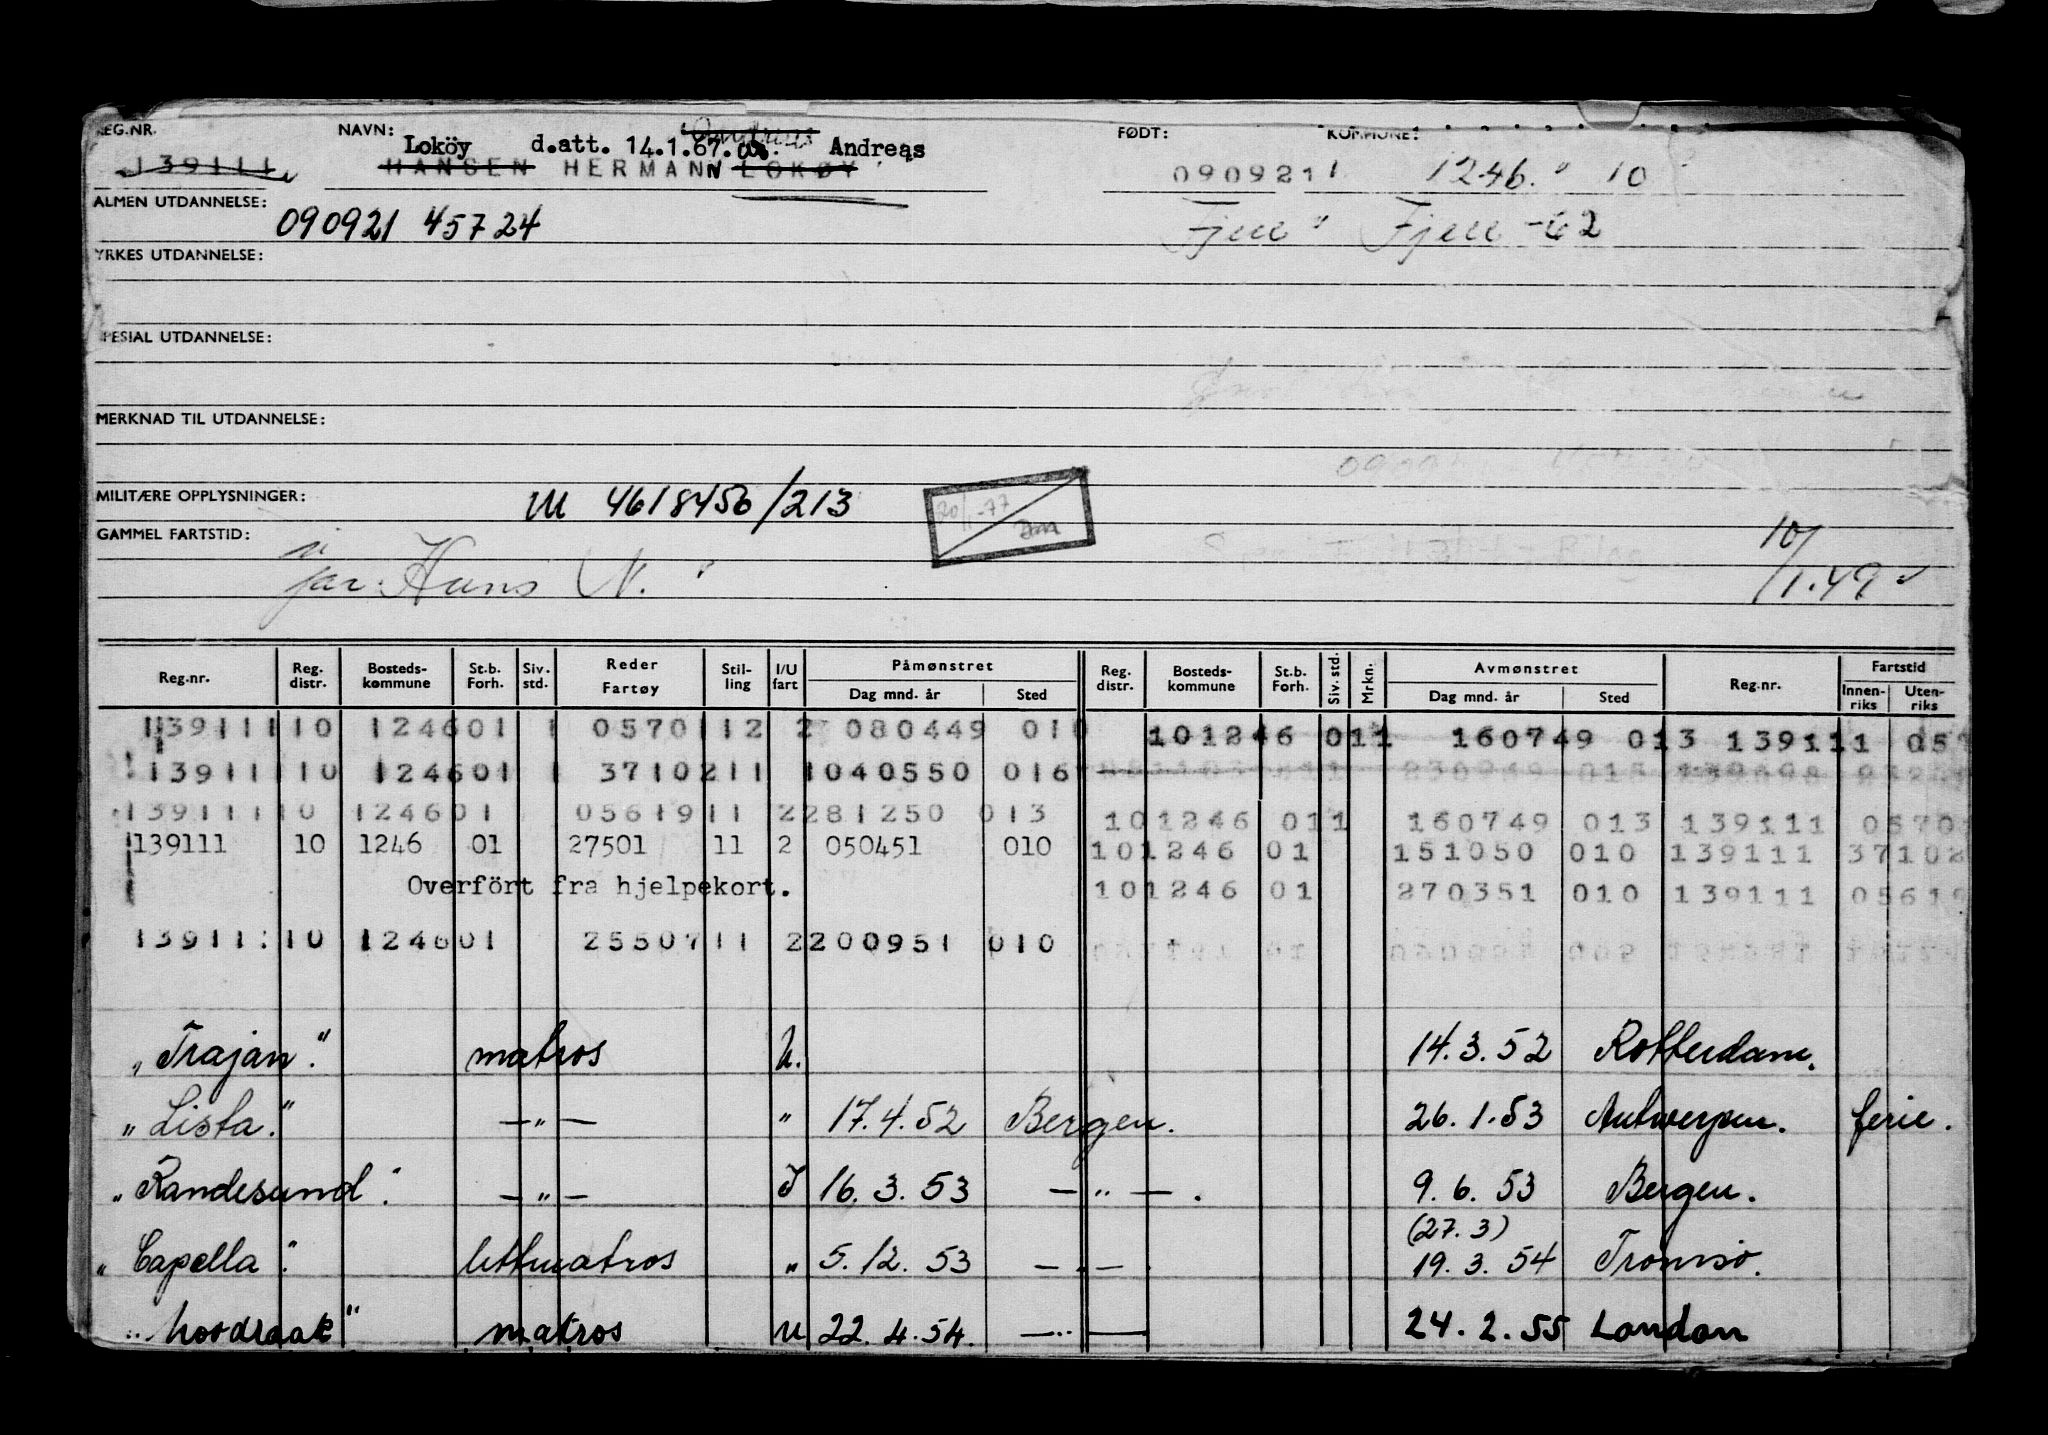 REG.NR. NAVN: FØDT: KOMMUNE:
Loköy d.att. 14.1.67. Andreas
139111 HANSEN HERMANN LOKØY 090921 1 1246. 10
ALMEN UTDANNELSE:
090921 45724 Fjell Fjell -62
YRKES UTDANNELSE:
SPESIAL UTDANNELSE:
MERKNAD TIL UTDANNELSE:
MILITÆRE OPPLYSNINGER: M 4618456/213 20/1-77
GAMMEL FARTSTID: 10/1.49
far: Hans N.
Reg.nr. Reg. distr. Bosteds-kommune St.b. Forh. Siv. std. Reder Fartøy Stil-ling I/U fart Påmønstret Dag mnd. år Sted Reg. distr. Bosteds-kommune St.b. Forh. Siv. std. Mrkn. Avmønstret Dag mnd. år Sted Reg.nr. Fartstid Innen-riks Uten-riks
139111 10 1246 01 1 0570112 2 080449 010 10 1246 01 1 160749 013 139111 057
139111 10 1246 01 1 3710211 1 040550 016
139111 10 1246 01 0561911 2 281250 013 10 1246 01 1 160749 013 139111 0570
139111 10 1246 01 27501 11 2 050451 010 10 1246 01 151050 010 139111 37102
Overfört fra hjelpekort. 10 1246 01 270351 010 139111 05619
13911 10 1246 01 2550711 2 200951 010
"Trajan". matros U. 14.3.52 Rotterdam.
"Lista." —"— " 17.4.52 Bergen. 26.1.53 Antwerpen. ferie.
"Randesund". —"— I 16.3.53 —"—. 9.6.53 Bergen.
(27.3)
"Capella". lettmatros " 5.12.53 —"— 19.3.54 Tromsö.
"Noordraak" matros U 22.4.54. —"— 24.2.55 London